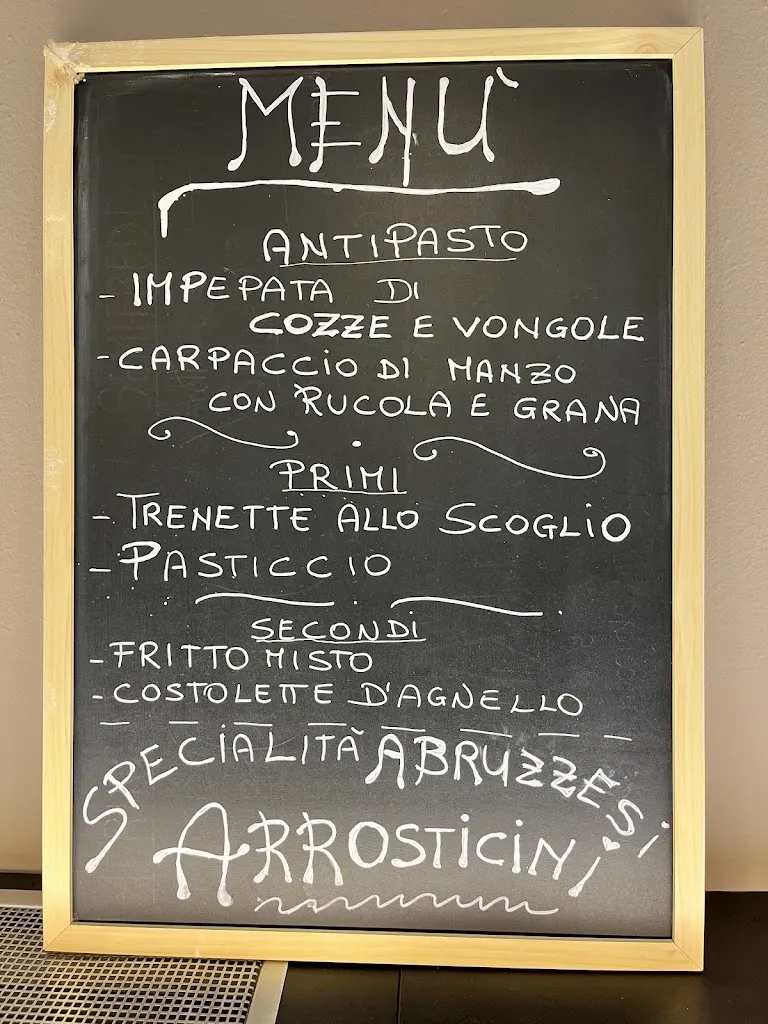 MENÙ
ANTIPASTO
- IMPEPATA DI
COZZE E VONGOLE
- CARPACCIO DI MANZO
CON RUCOLA E GRANA
PRIMI
- TRENETTE ALLO SCOGLIO
- PASTICCIO
SECONDI
- FRITTO MISTO
- COSTOLETTE D'AGNELLO
SPECIALITÀ ABRUZZESi
ARROSTICINi